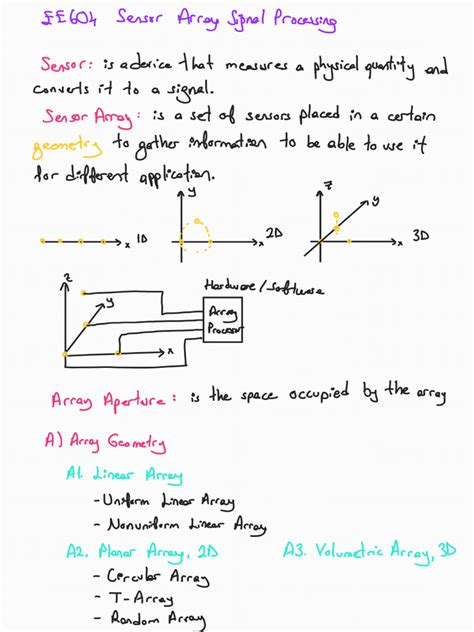 EE604 Sensor Array Signal Processing
Sensor: is a device that measures a physical quantity and
converts it to a signal.
Sensor Array: is a set of sensors placed in a certain
geometry to gather information to be able to use it
for different application.
x 1D
y
x 2D
z
y
x 3D
z
y
x
Hardware/Software
Array
Processor
Array Aperture: is the space occupied by the array
A) Array Geometry
A1. Linear Array
- Uniform Linear Array
- Nonuniform Linear Array
A2. Planar Array, 2D
A3. Volumetric Array, 3D
- Circular Array
- T-Array
- Random Array